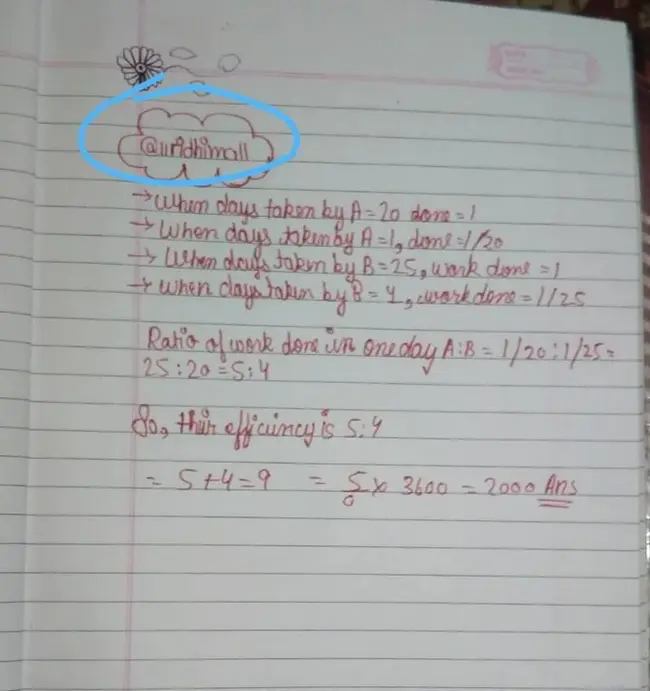 @uridhimall
→ When days taken by A = 20 done = 1
→ When days taken by A = 1, done = 1/20
→ When days taken by B = 25, work done = 1
→ When days taken by B = 1, work done = 1/25
Ratio of work done in one day A:B = 1/20 : 1/25 =
25 : 20 = 5 : 4
So, their efficiency is 5:4
= 5+4 = 9 = 5/9 × 3600 = 2000 Ans